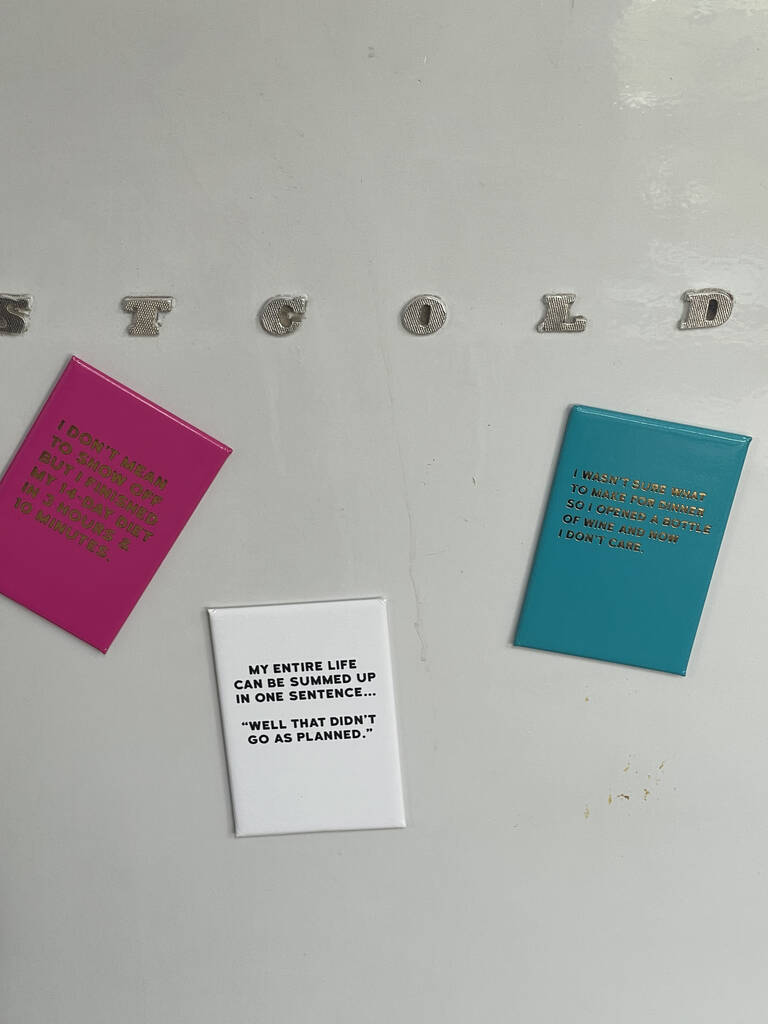 STCOLD
I DON'T MEAN
TO SHOW OFF
BUT I FINISHED
MY 14-DAY DIET
IN 3 HOURS &
10 MINUTES.
MY ENTIRE LIFE
CAN BE SUMMED UP
IN ONE SENTENCE...
“WELL THAT DIDN'T
GO AS PLANNED.”
I WASN'T SURE WHAT
TO MAKE FOR DINNER
SO I OPENED A BOTTLE
OF WINE AND NOW
I DON'T CARE.